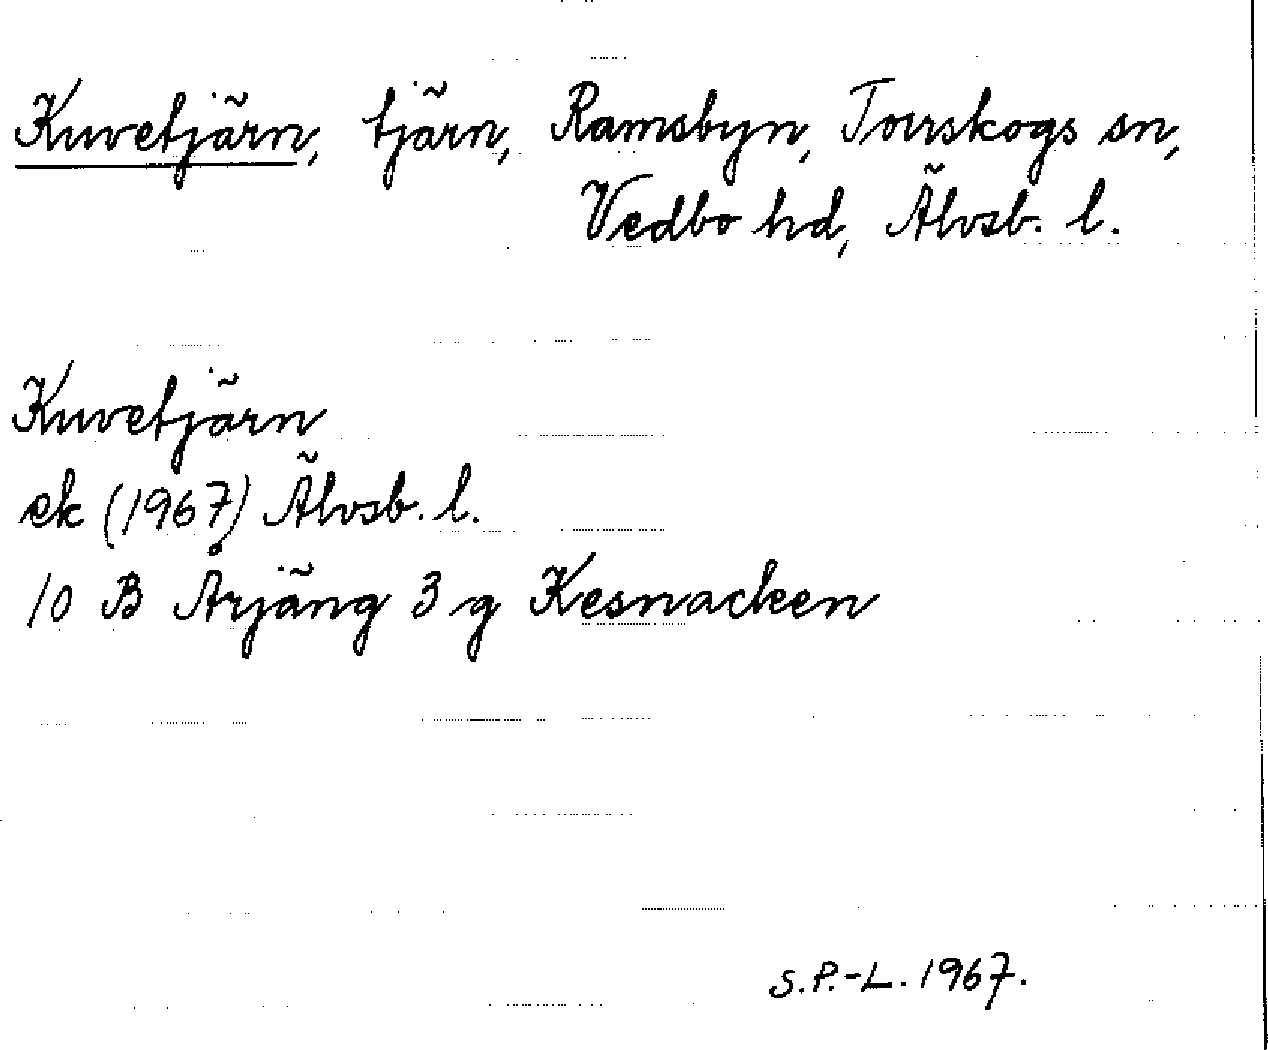 Kuvetjärn, tjärn, Ramsbyn, Torrskogs sn,
Vedbo hd, Älvsb. l.
Kuvetjärn
ek (1967) Älvsb. l.
10 B Årjäng 3 g Kesnacken
S.P.-L. 1967.